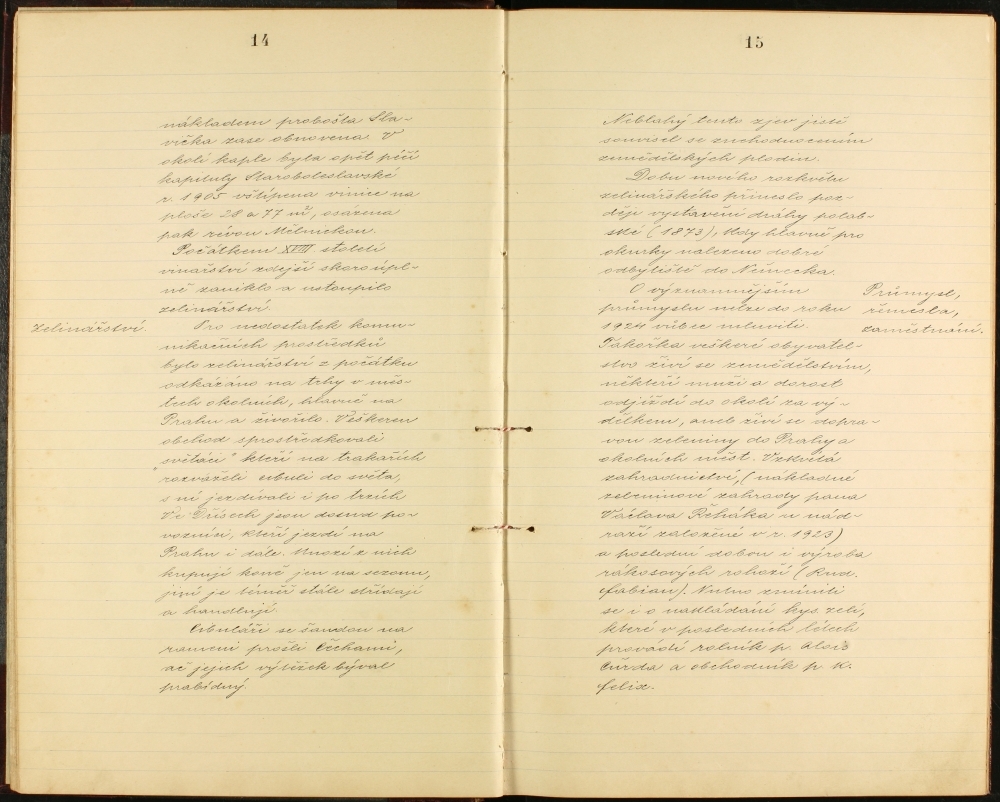 14
nákladem probošta Sla-
víčka zase obnovena. V
okolí kaple byla opět péčí
kapituly Staroboleslavské
r. 1905 vštípena vinice na
ploše 28 a 77 m², osázena
pak révou Mělnickou.
Počátkem XVIII století
vinařství zdejší skoro úpl-
ně zaniklo a ustoupilo
zelinářství.
Zelinářství.
Pro nedostatek komu-
nikačních prostředků
bylo zelinářství z počátku
odkázáno na trhy v měs-
tech okolních, hlavně na
Prahu a živořilo. Veškeren
obchod sprostředkovali
"světáci" kteří na trakařích
rozváželi cibuli do světa,
s ní jezdívali i po trzích
Ve Dřísech jsou dosud po-
vozníci, kteří jezdí na
Prahu i dále. Mnozí z nich
kupují koně jen na sezonu,
jiní je téměř stále střídají
a handlují.
Cibuláři se šandou na
rameni prošli Čechami,
ač jejich výtěžek býval
prabídný.
15
Neblahý tento zjev jistě
souvisel se znehodnocením
zemědělských plodin.
Dobu nového rozkvětu
zelinářského přineslo poz-
ději vystavění dráhy polab-
ské (1873), kdy hlavně pro
okurky nalezeno dobré
odbytiště do Německa.
Průmysl,
řemesla,
zaměstnání.
O významnějším
průmyslu nelze do roku
1924 vůbec mluviti.
Takořka veškeré obyvatel-
stvo živí se zemědělstvím,
někteří muži a dorost
odjíždí do okolí za vý-
dělkem, aneb živí se dopra-
vou zeleniny do Prahy a
okolních měst. Vzkvétá
zahradnictví, (nákladné
zeleninové zahrady pana
Václava Řeháka u nád-
raží založené v r. 1923)
a poslední dobou i výroba
rákosových rohoží (Rud.
Fabian). Nutno zmíniti
se i o nakládání kys. zelí,
které v posledních létech
provádí rolník p. Alois
Čurda a obchodník p. K.
Felix.